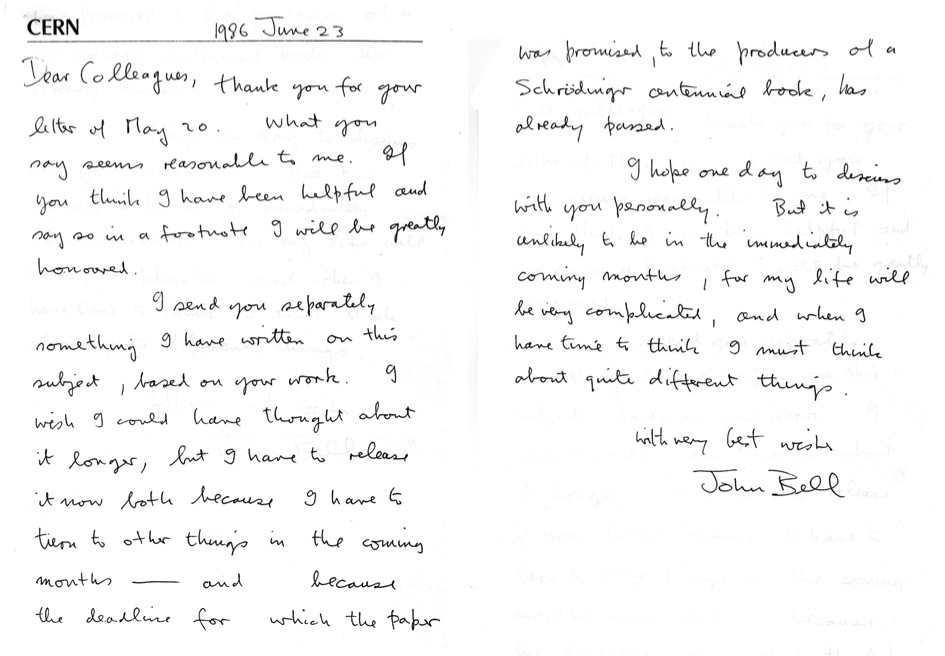 CERN
1986 June 23
Dear Colleagues, thank you for your
letter of May 20. What you
say seems reasonable to me. If
you think I have been helpful and
say so in a footnote I will be greatly
honoured.
I send you separately
something I have written on this
subject, based on your work. I
wish I could have thought about
it longer, but I have to release
it now both because I have to
turn to other things in the coming
months — and because
the deadline for which the paper
was promised, to the producers of a
Schrödinger centennial book, has
already passed.
I hope one day to discuss
with you personally. But it is
unlikely to be in the immediately
coming months, for my life will
be very complicated, and when I
have time to think I must think
about quite different things.
with very best wishes
John Bell